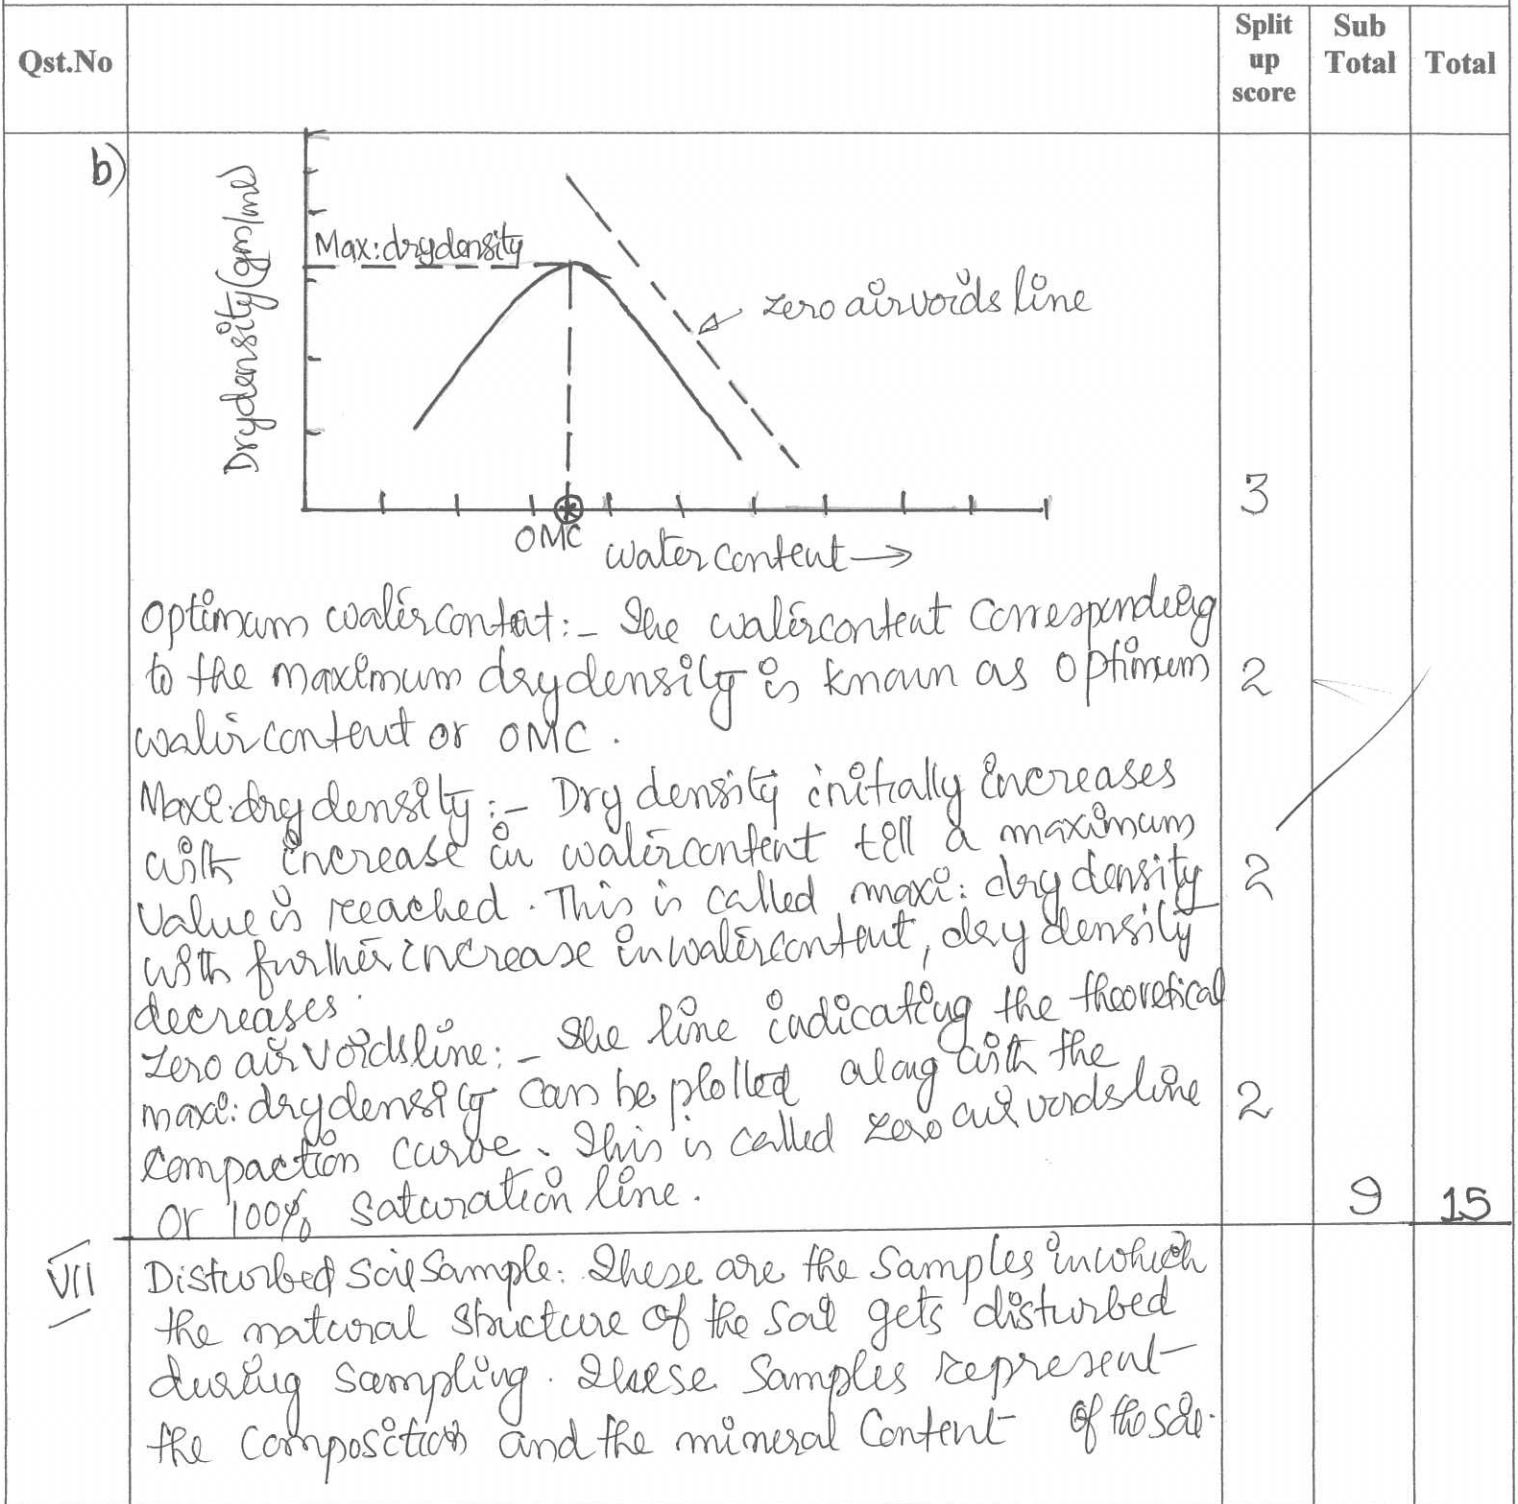 Qst.No
Split up score
Sub Total
Total
b)
Drydensity(gm/ml)
Max:drydensity
zero airvoids line
OMC
water content →
3
Optimum water content:- The water content corresponding
to the maximum dry density is known as optimum
water content or OMC.
2
Maxi:dry density:- Dry density initially increases
with increase in water content till a maximum
value is reached. This is called maxi: dry density
with further increase in water content, dry density
decreases.
2
Zero air voids line:- The line indicating the theoretical
maxi: dry density can be plotted along with the
compaction curve. This is called zero air voids line
or 100% saturation line.
2
9
15
VII
Disturbed soil sample: These are the samples in which
the natural structure of the soil gets disturbed
during sampling. These samples represent
the composition and the mineral content of the soil.